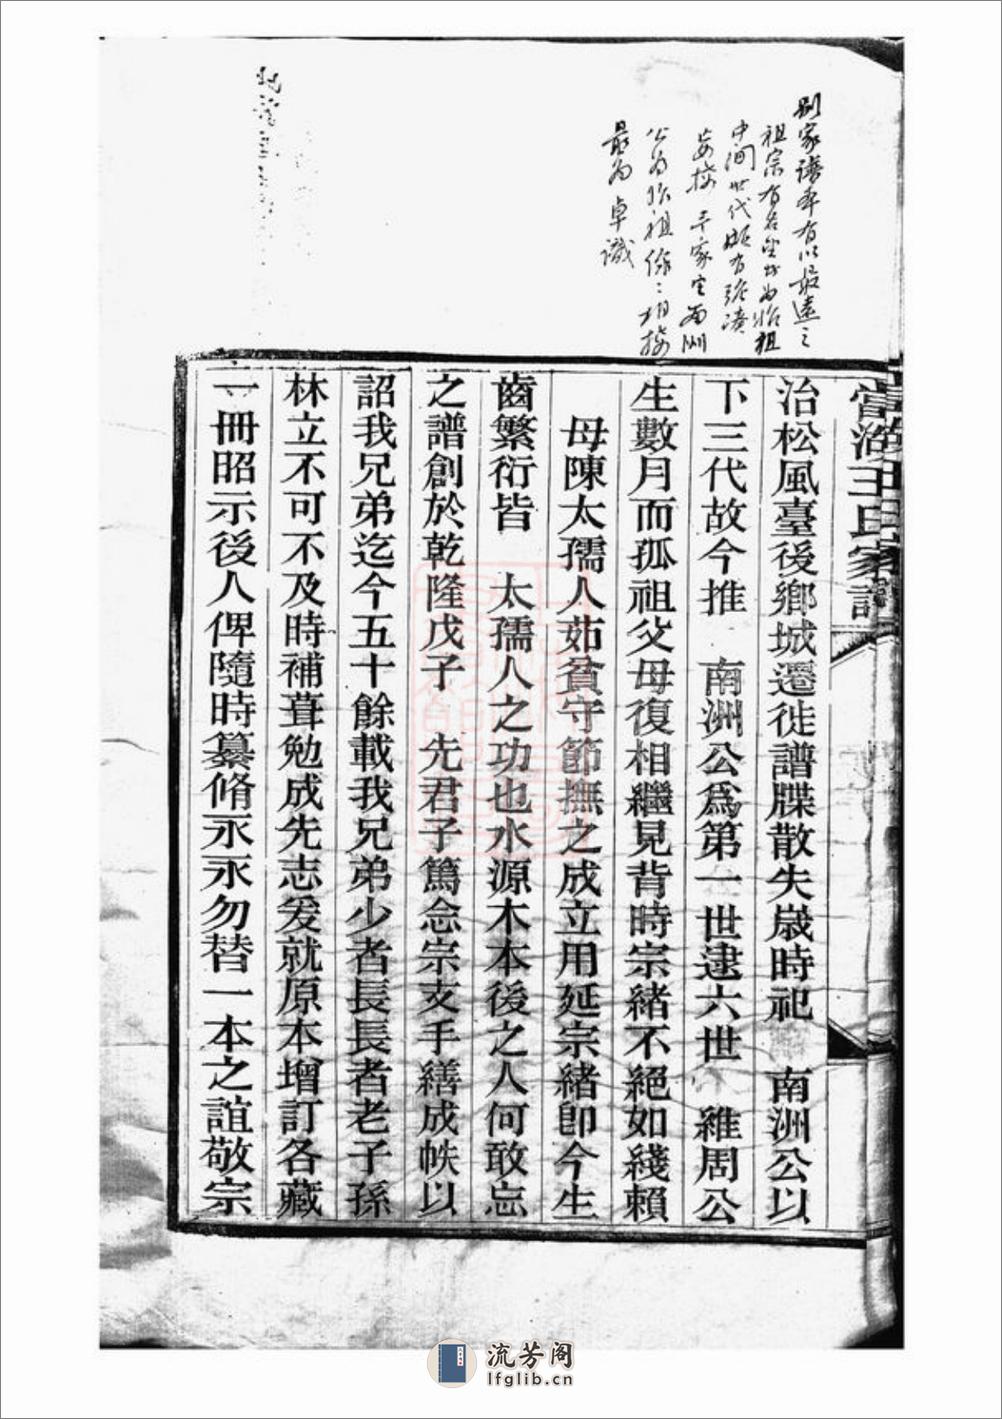 當湖王氏家譜
治松風臺後鄉城遷徙譜牒散失歲時祀　南洲公以
下三代故今推　南洲公爲第一世逮六世　維周公
生數月而孤祖父母復相繼見背時宗緒不絕如綫賴
母陳太孺人茹貧守節撫之成立用延宗緒卽今生
齒繁衍皆　太孺人之功也水源木本後之人何敢忘
之譜創於乾隆戊子　先君子篤念宗支手繕成帙以
詔我兄弟迄今五十餘載我兄弟少者長長者老子孫
林立不可不及時補葺勉成先志爰就原本增訂各藏
一冊昭示後人俾隨時纂脩永永勿替一本之誼敬宗
別家譜率有以最遠之
祖宗有名望者為始祖
中間世代
王家宅南洲
公為始祖
最為卓識
流芳阁
lfglib.cn